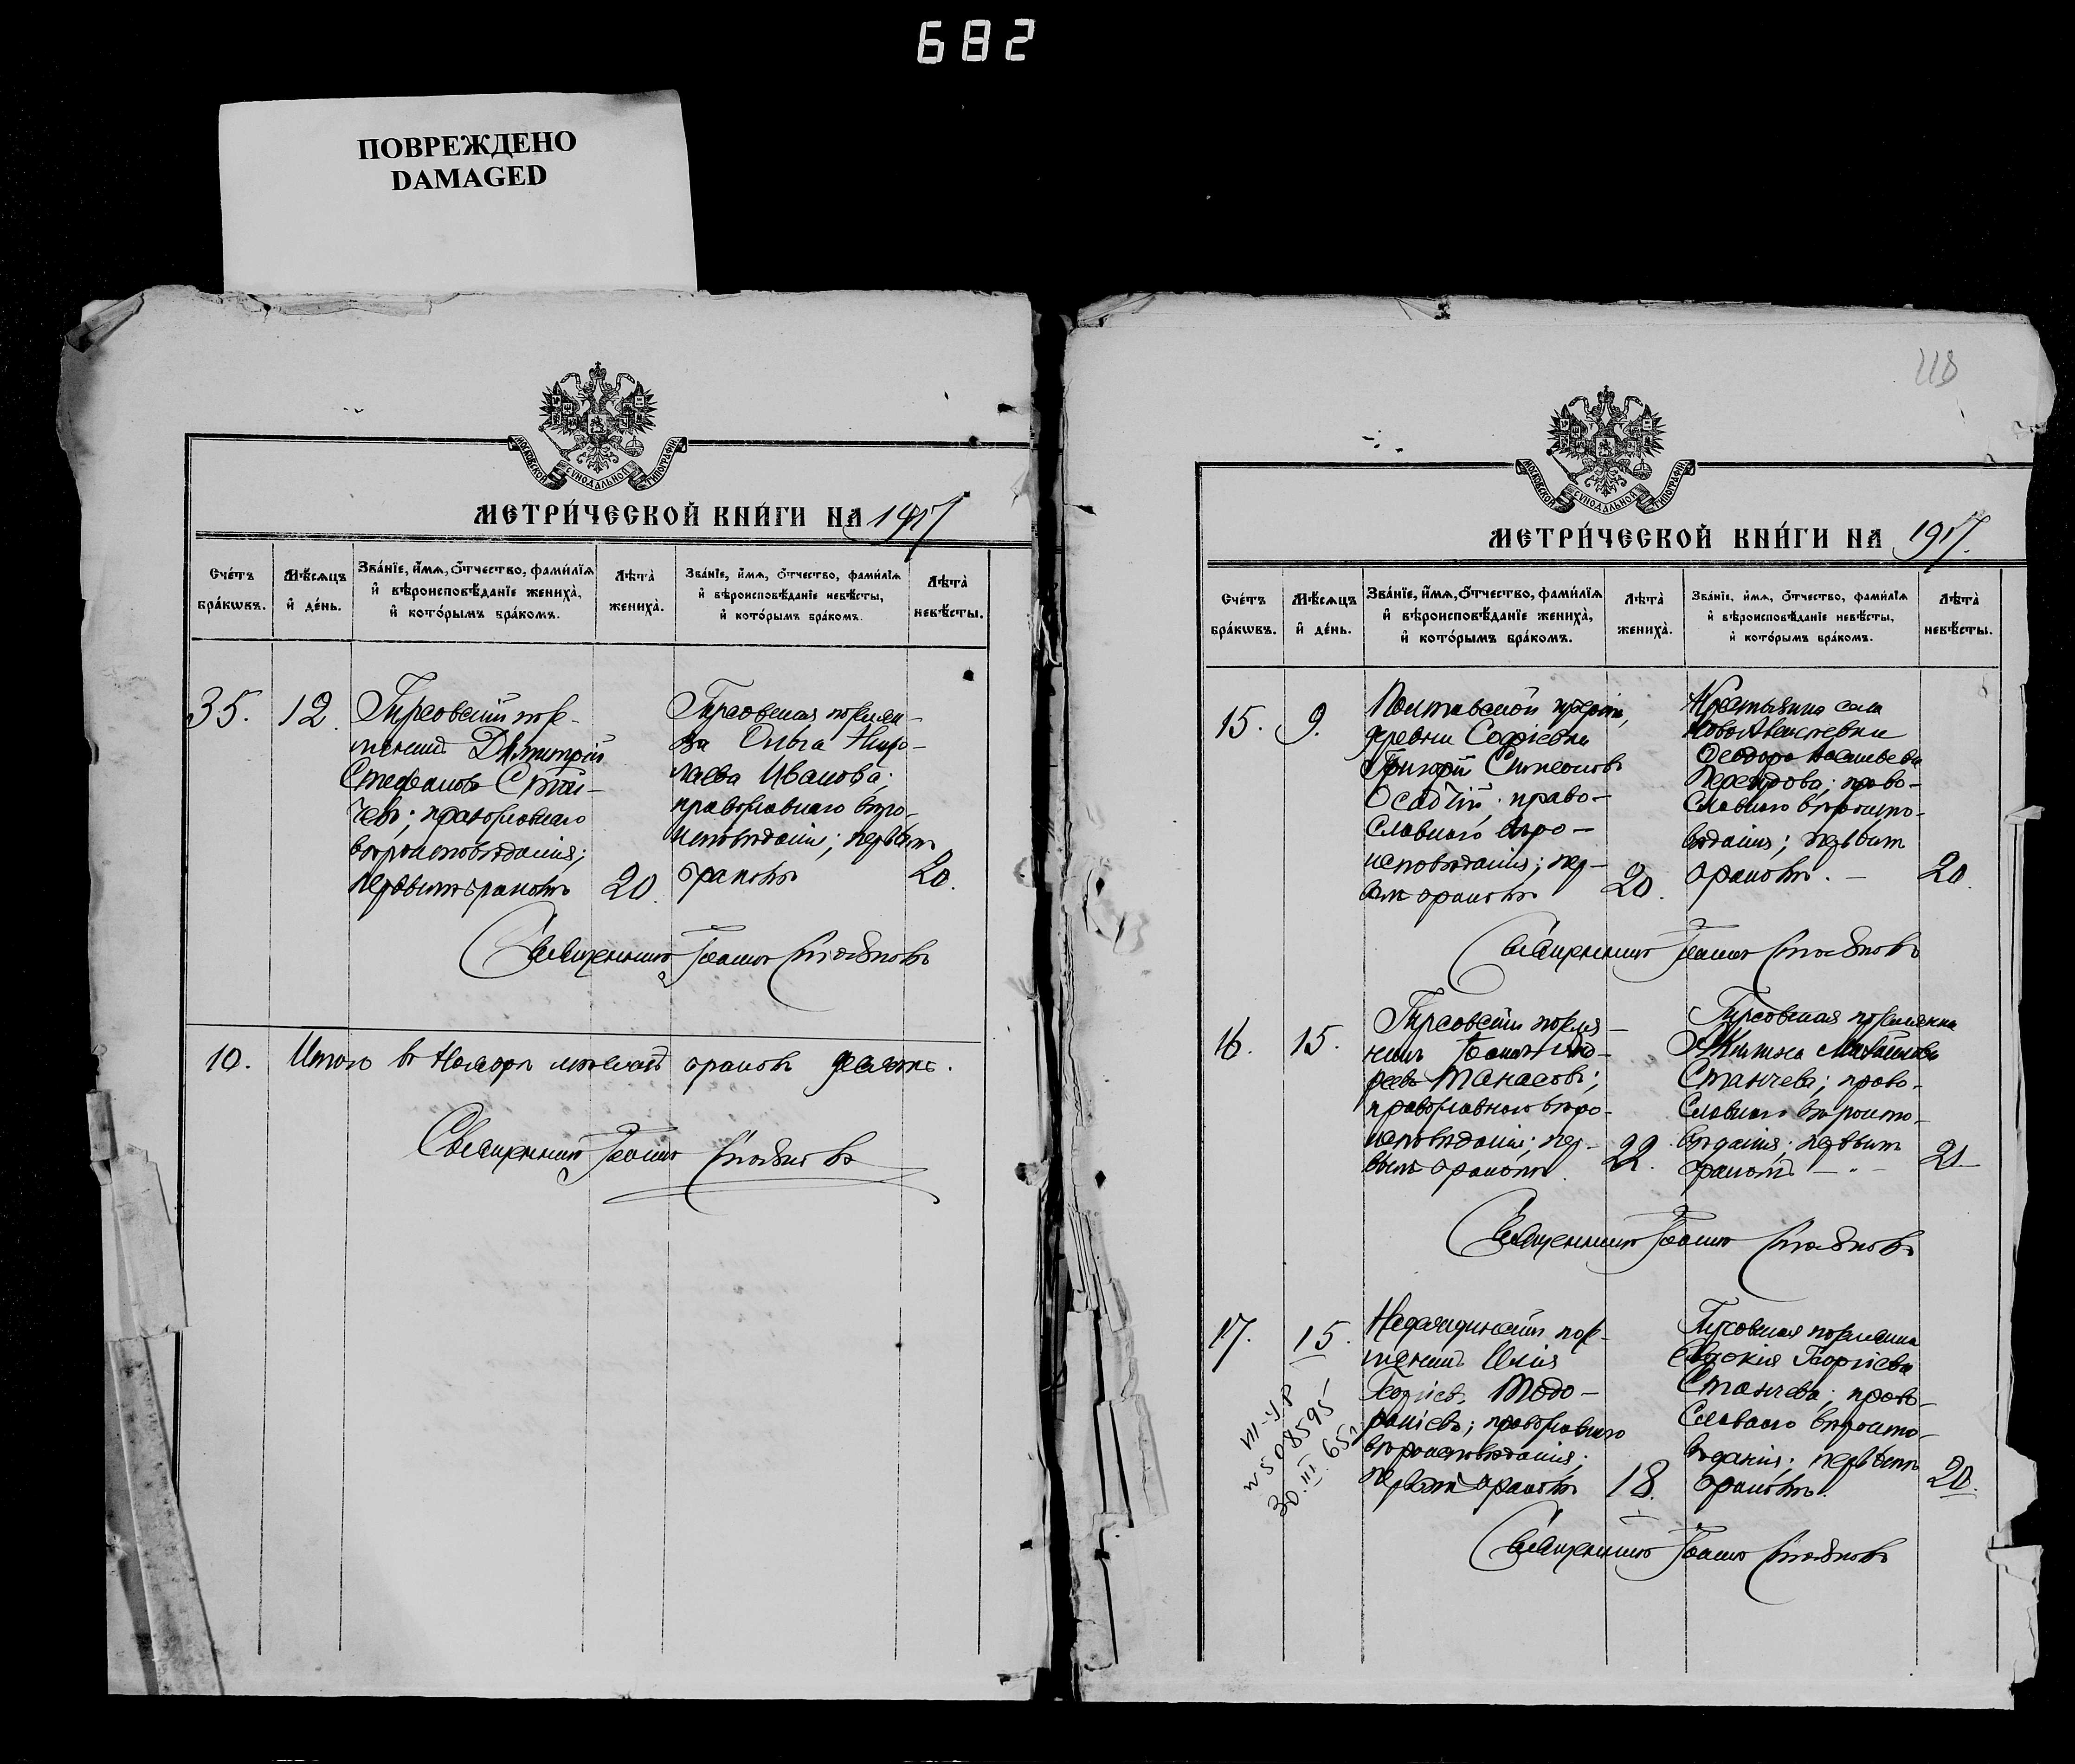 682
ПОВРЕЖДЕНО
DAMAGED
МОСКОВСКОЙ СѴНОДАЛЬНОЙ ТИПОГРАФІИ
МЕТРИ́ЧЕСКОЙ КНИ́ГИ НА 1917
Сче́тъ бра́кѡвъ.
Мѣ́сѧцъ и де́нь.
Зва́нїе, и́мѧ, ѻ́тчество, фами́лїѧ
и вѣроисповѣ́данїе жениха̀,
и кото́рымъ бра́комъ.
Лѣта̀ жениха̀.
Зва́нїе, и́мѧ, ѻ́тчество, фами́лїѧ
и вѣроисповѣ́данїе невѣ́сты,
и кото́рымъ бра́комъ.
Лѣта̀ невѣ́сты.
35.
12.
Гирсовскій посе-
лянинъ Димитрій
Стефановъ Стой-
чевъ; православнаго
вѣроисповѣданія;
первымъ бракомъ
20.
Гирсовская поселян-
ка Ольга Нико-
лаева Иванова;
православнаго вѣро-
исповѣданія; первымъ
бракомъ
20.
Священникъ Іоаннъ Стояновъ
10. Итого въ Ноябрѣ мѣсяцѣ браковъ десять.
Священникъ Іоаннъ Стояновъ
118
МОСКОВСКОЙ СѴНОДАЛЬНОЙ ТИПОГРАФІИ
МЕТРИ́ЧЕСКОЙ КНИ́ГИ НА 1917.
Сче́тъ бра́кѡвъ.
Мѣ́сѧцъ и де́нь.
Зва́нїе, и́мѧ, ѻ́тчество, фами́лїѧ
и вѣроисповѣ́данїе жениха̀,
и кото́рымъ бра́комъ.
Лѣта̀ жениха̀.
Зва́нїе, и́мѧ, ѻ́тчество, фами́лїѧ
и вѣроисповѣ́данїе невѣ́сты,
и кото́рымъ бра́комъ.
Лѣта̀ невѣ́сты.
15.
9.
Полтавской губерніи,
деревни Софіевки
Григорій Симеоновъ
Осадчій; право-
славнаго вѣро-
исповѣданія; пер-
вым бракомъ
20.
Крестьянка села
Ѳеодора Васильева
право-
славнаго вѣроиспо-
вѣданія; первымъ
бракомъ. —
20.
Священникъ Іоаннъ Стояновъ
16.
15.
Гирсовскій поселя-
нинъ Іоаннъ
Танасовъ;
православнаго вѣро-
исповѣданія; пер-
вымъ бракомъ.
22.
Гирсовская поселянка
Михайлова
Станчева; право-
славнаго вѣроиспо-
вѣданія; первымъ
бракомъ —
21
Священникъ Іоаннъ Стояновъ
17.
15.
посе-
лянинъ Илія
Георгіевъ Тодо-
православнаго
вѣроисповѣданія;
первым бракомъ
18.
Гирсовская поселянка
Евдокія Георгіева
Станчева; право-
славнаго вѣроиспо-
вѣданія; первымъ
бракомъ.
20.
№ 508595
30.III.65г
Священникъ Іоаннъ Стояновъ